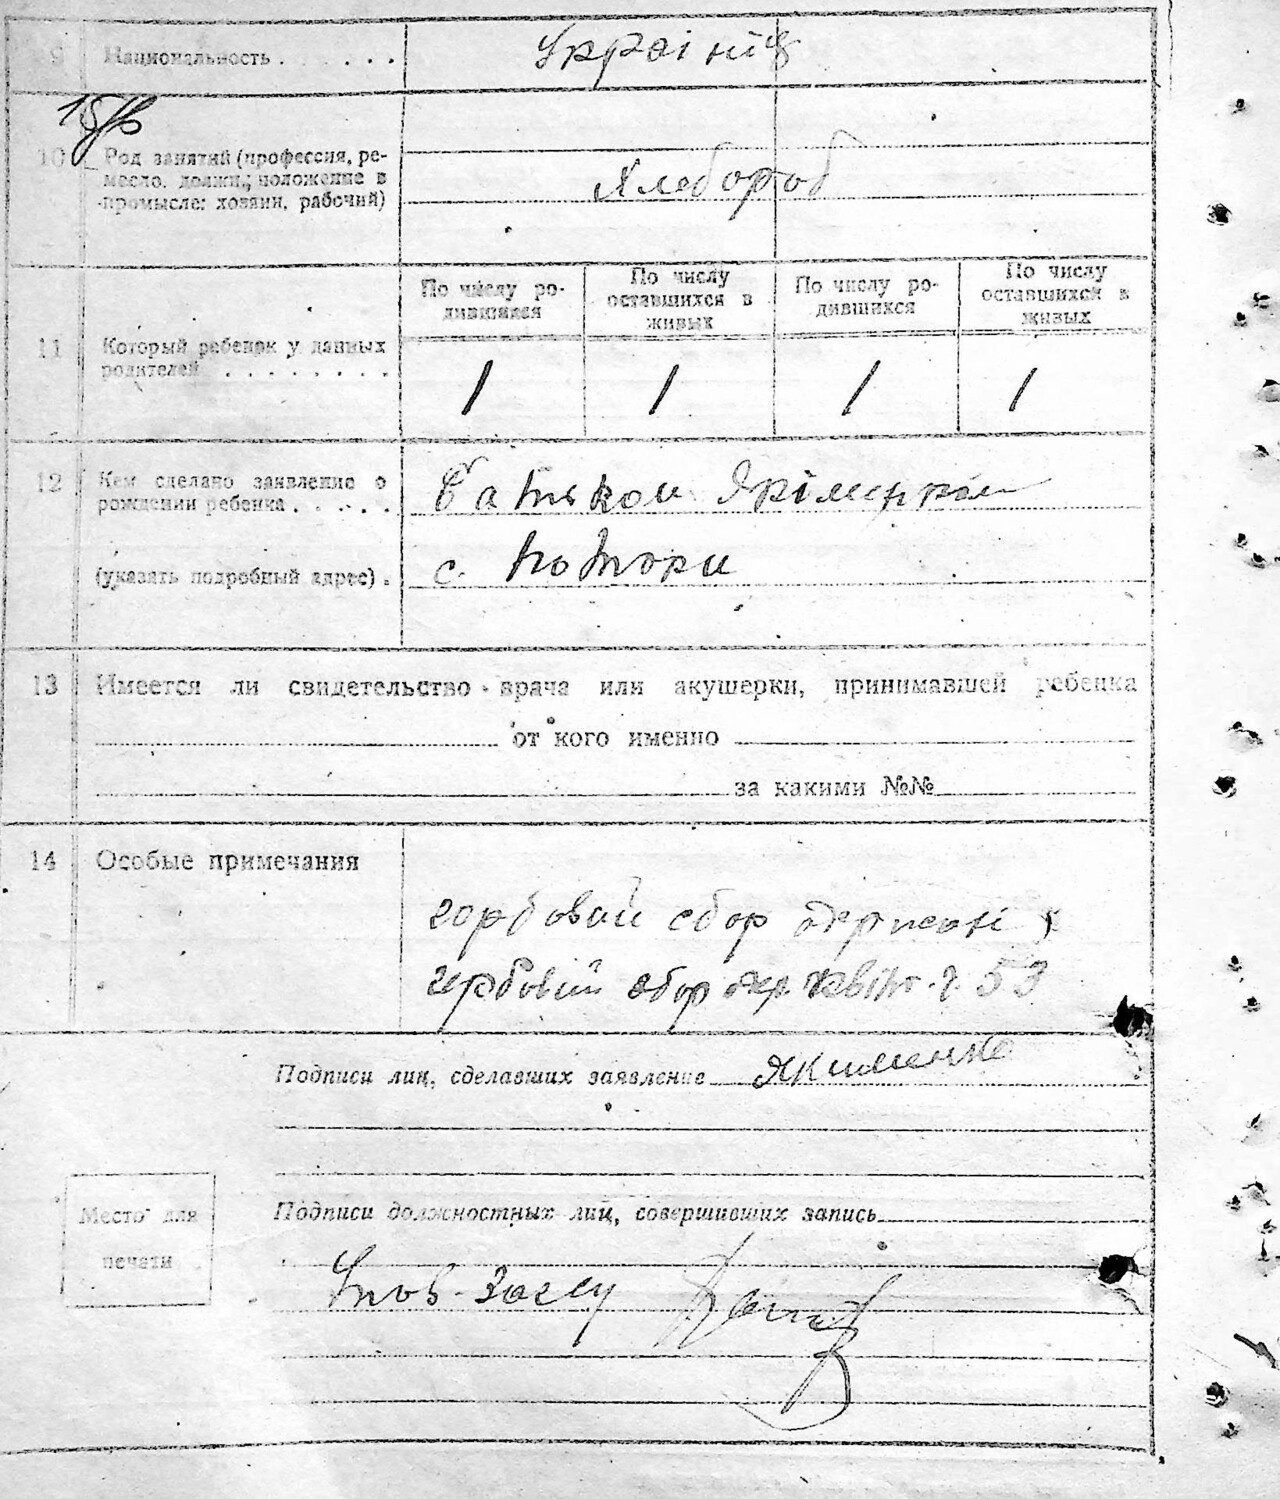 9 Национальность . . . . . . Українц
10 Род занятий (профессия, ре-
месло, должн., положение в
промысле: хозяин, рабочий)
Хлебороб
По числу ро-
дившихся
По числу
оставшихся в
живых
По числу ро-
дившихся
По числу
оставшихся в
живых
11 Который ребенок у данных
родителей . . . . . . . .
1 1 1 1
12 Кем сделано заявление о
рождении ребенка . . . . .
Батьком
(указать подробный адрес) .
с.
13 Имеется ли свидетельство врача или акушерки, принимавшей ребенка
от кого именно
за какими №№
14 Особые примечания
гербовий сбор
гербовий збор 53
Подписи лиц, сделавших заявление Якименко
Место для
печати
Подписи должностных лиц, совершивших запись
Упов. Загсу